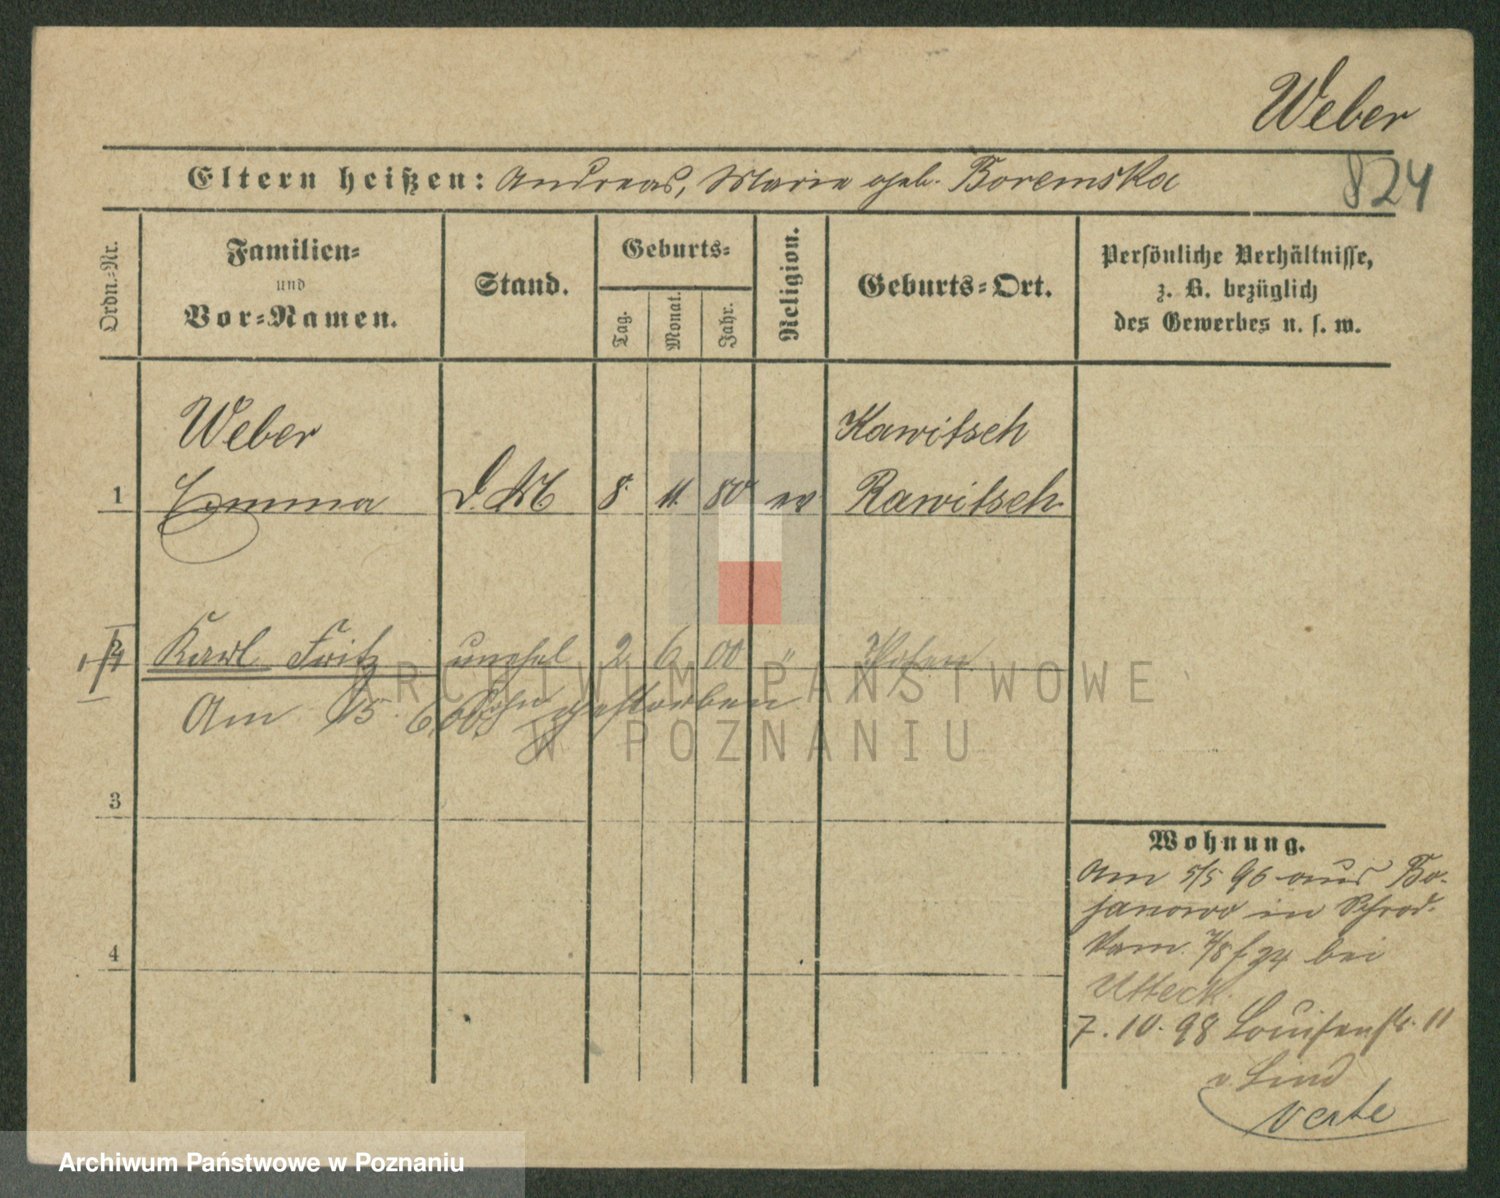 Weber
824
Eltern heißen: Andreas, Marie geb. Boremska
Ordn.=Nr.
Familien=
und
Vor=Namen.
Stand.
Geburts=
Tag.
Monat.
Jahr.
Religion.
Geburts=Ort.
Persönliche Verhältnisse,
z. B. bezüglich
des Gewerbes u. s. w.
Weber
Kawitsch
1 Emma D.M 8. 11. 80 ev Rawitsch
Karl Fritz unehel 2. 6. 00 " Posen
Sohn
Am 15. 6.00 gestorben
3
4
Wohnung.
Am 5/5 96 aus Bo-
janowo in Schrod.
bei
7.10.98 Louisenstr. 11
v Lind
verte
ARCHIWUM PAŃSTWOWE
W POZNANIU
Archiwum Państwowe w Poznaniu